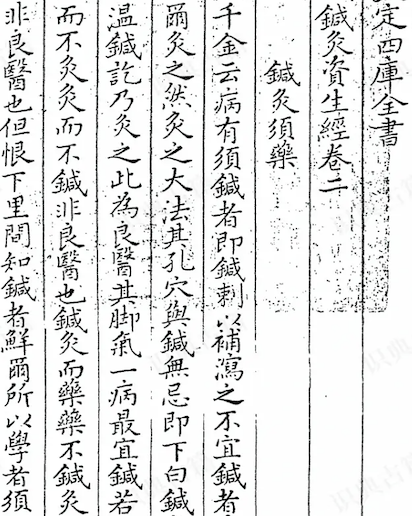 定四庫全書
鍼灸資生經卷二
鍼灸須藥
千金云病有須鍼者即鍼刺以補瀉之不宜鍼者
爾灸之然灸之大法其孔穴與鍼無忌即下白鍼
温鍼訖乃灸之此為良醫其脚氣一病最宜鍼若
而不灸灸而不鍼非良醫也鍼灸而藥藥不鍼灸
非良醫也但恨下里間知鍼者鮮爾所以學者須